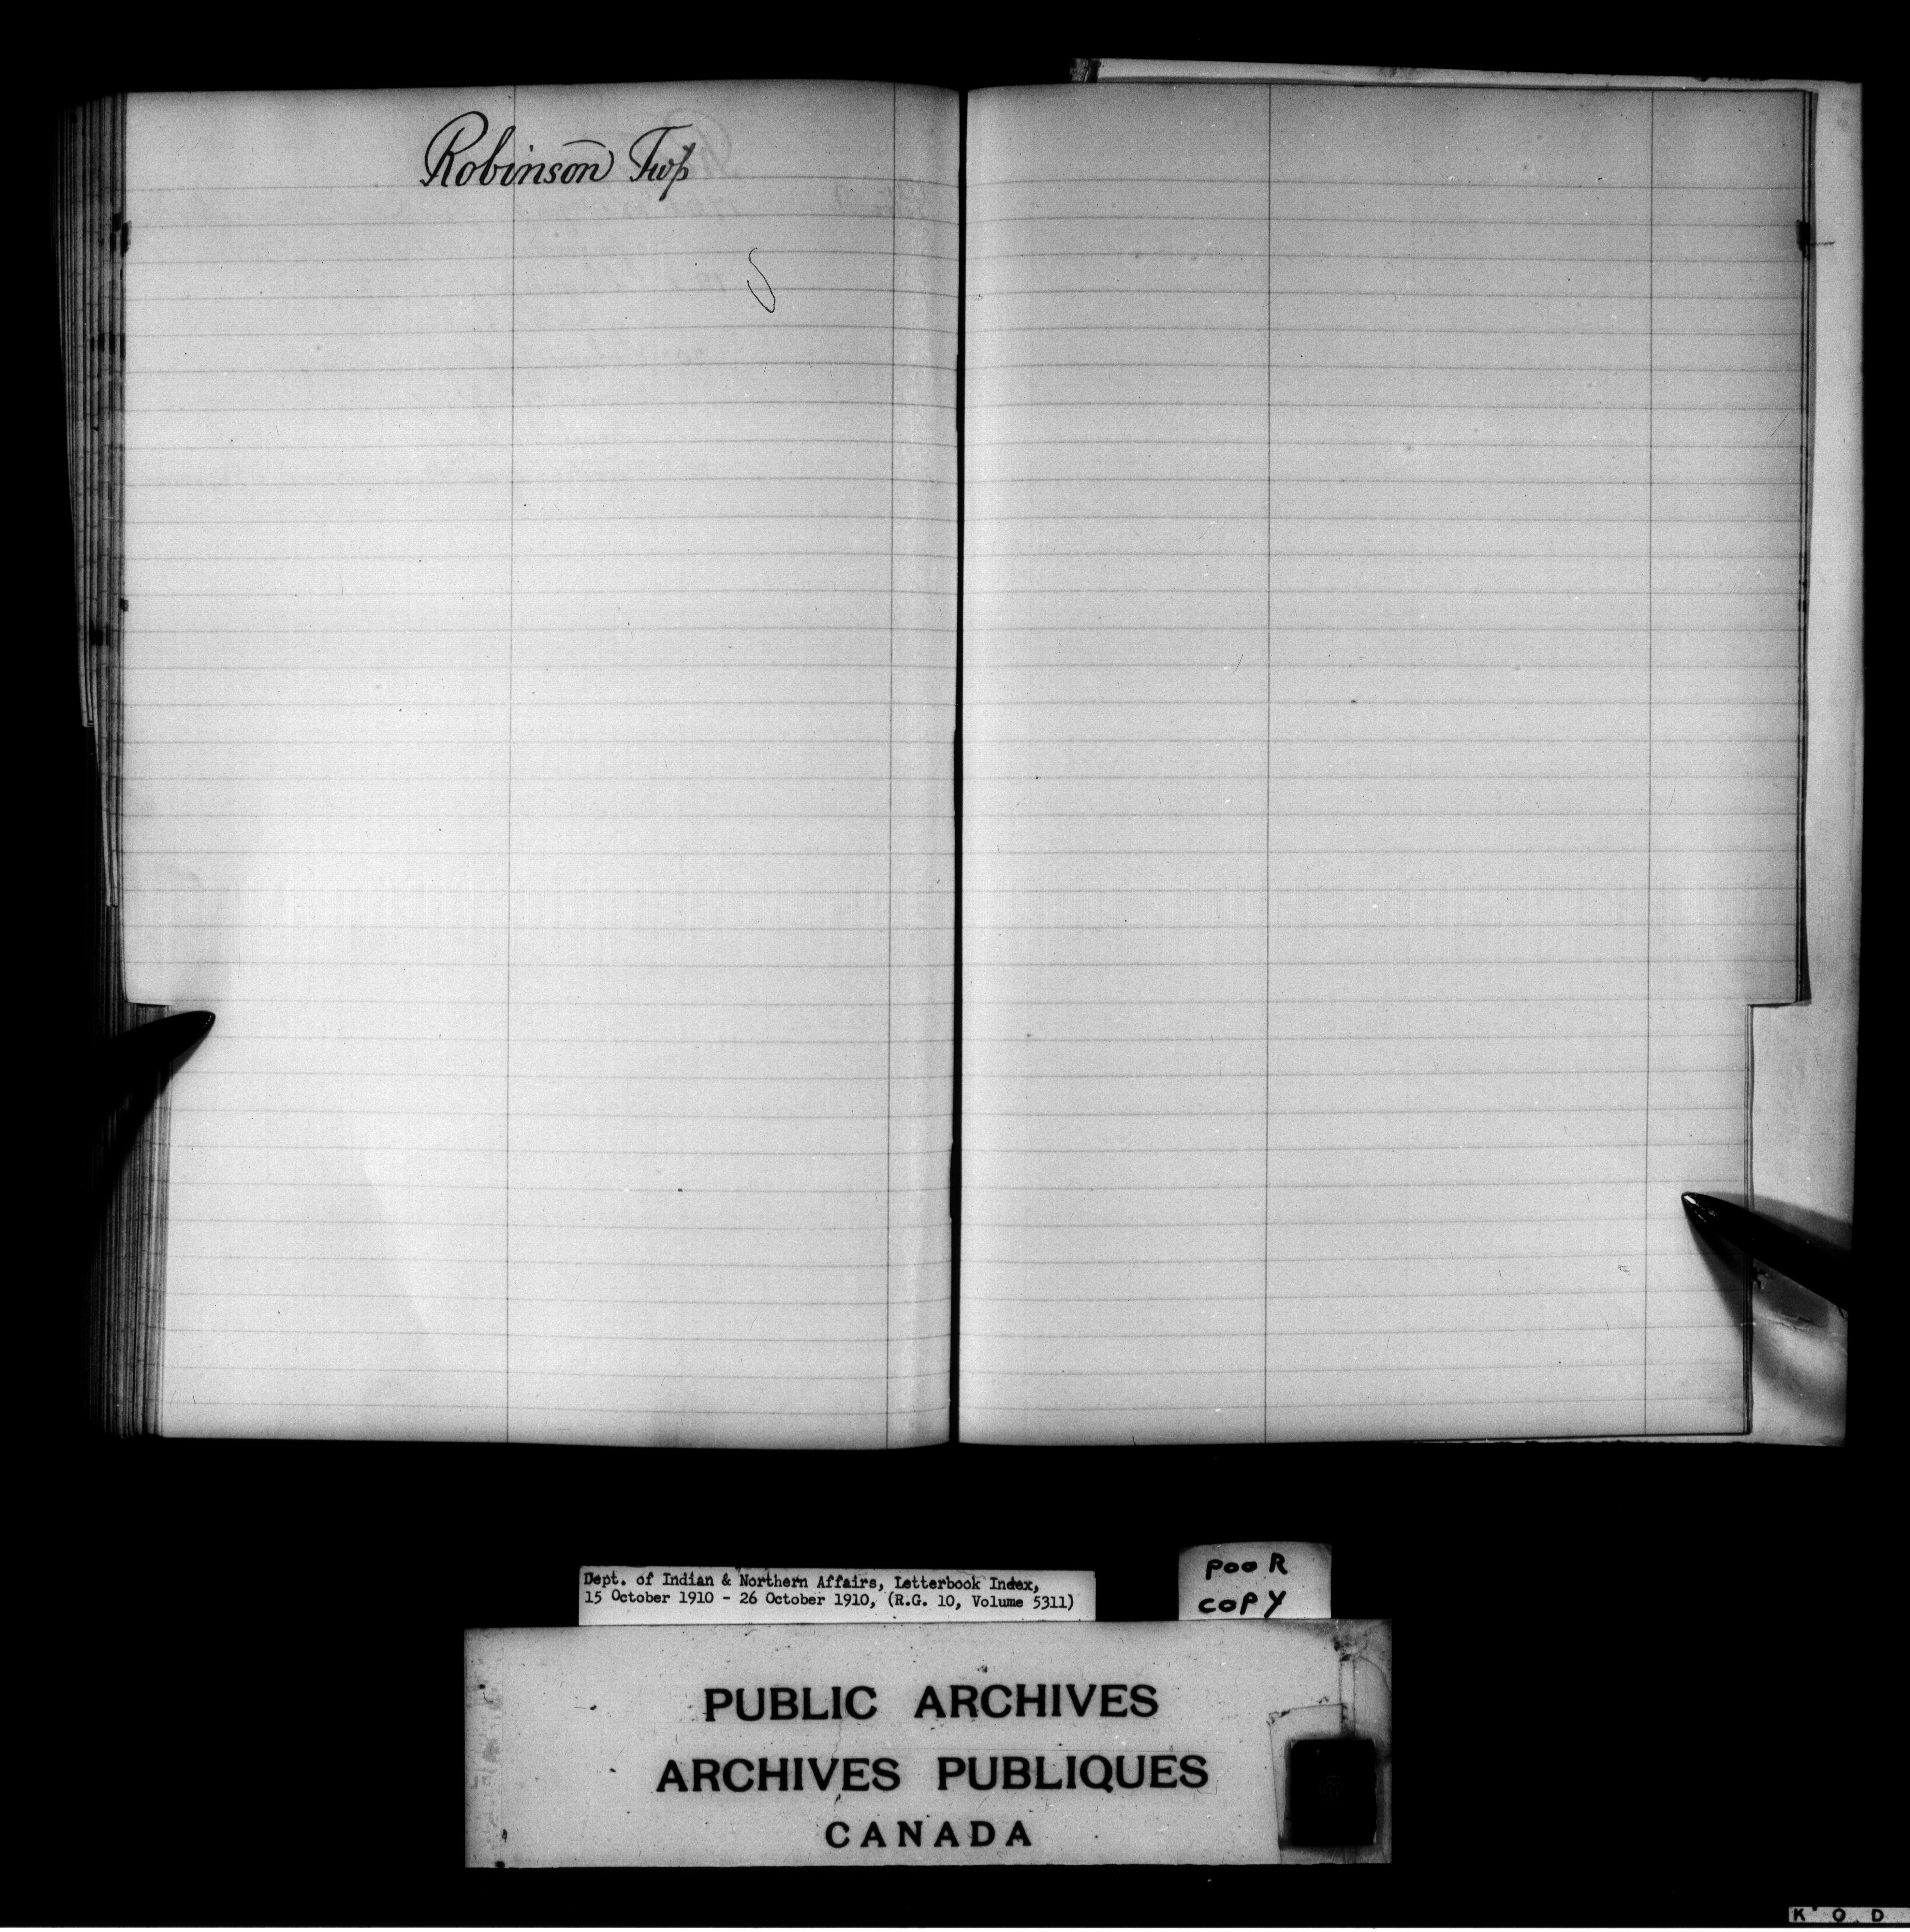 Robinson Twp
Dept. of Indian & Northern Affairs, Letterbook Index,
15 October 1910 - 26 October 1910, (R.G. 10, Volume 5311)
POOR
COPY
PUBLIC ARCHIVES
ARCHIVES PUBLIQUES
CANADA
K O D